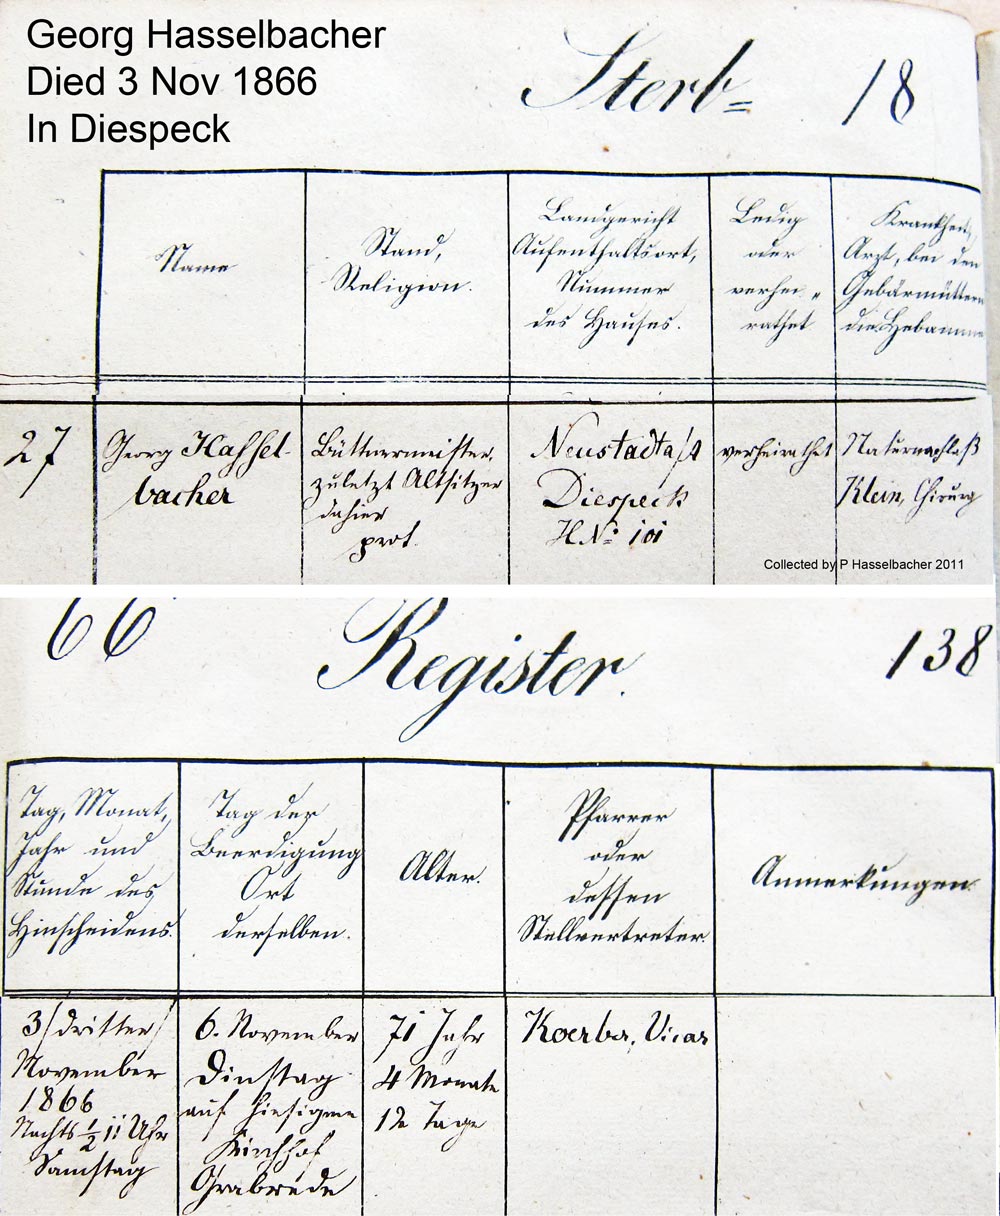 Georg Hasselbacher
Died 3 Nov 1866
In Diespeck
Sterb= 18
Name
Stand,
Religion.
Landgericht
Aufenthaltsort,
Nummer
des Hauses.
Ledig
oder
verhei=
rathet
Krankheit,
Arzt, bei den
Gebärmüttern
die Hebamme
27
Georg Hassel-
bacher
Büttnermeister,
zuletzt Altsitzer
dahier
prot.
Neustadt a/A
Diespeck
HNo: 101
verheirathet
Naturnachlaß
Klein, Chirurg
Collected by P Hasselbacher 2011
66 Register. 138
Tag, Monat,
Jahr und
Stunde des
Hinscheidens.
Tag der
Beerdigung
Ort
derselben.
Alter.
Pfarrer
oder
dessen
Stellvertreter.
Anmerkungen.
3/dritter/
November
1866
Nachts ½ 11 Uhr
Samstag
6. November
Dinstag
auf hiesigem
Kirchhof
Grabrede
71 Jahr
4 Monate
12 Tage
Koerber, Vicar